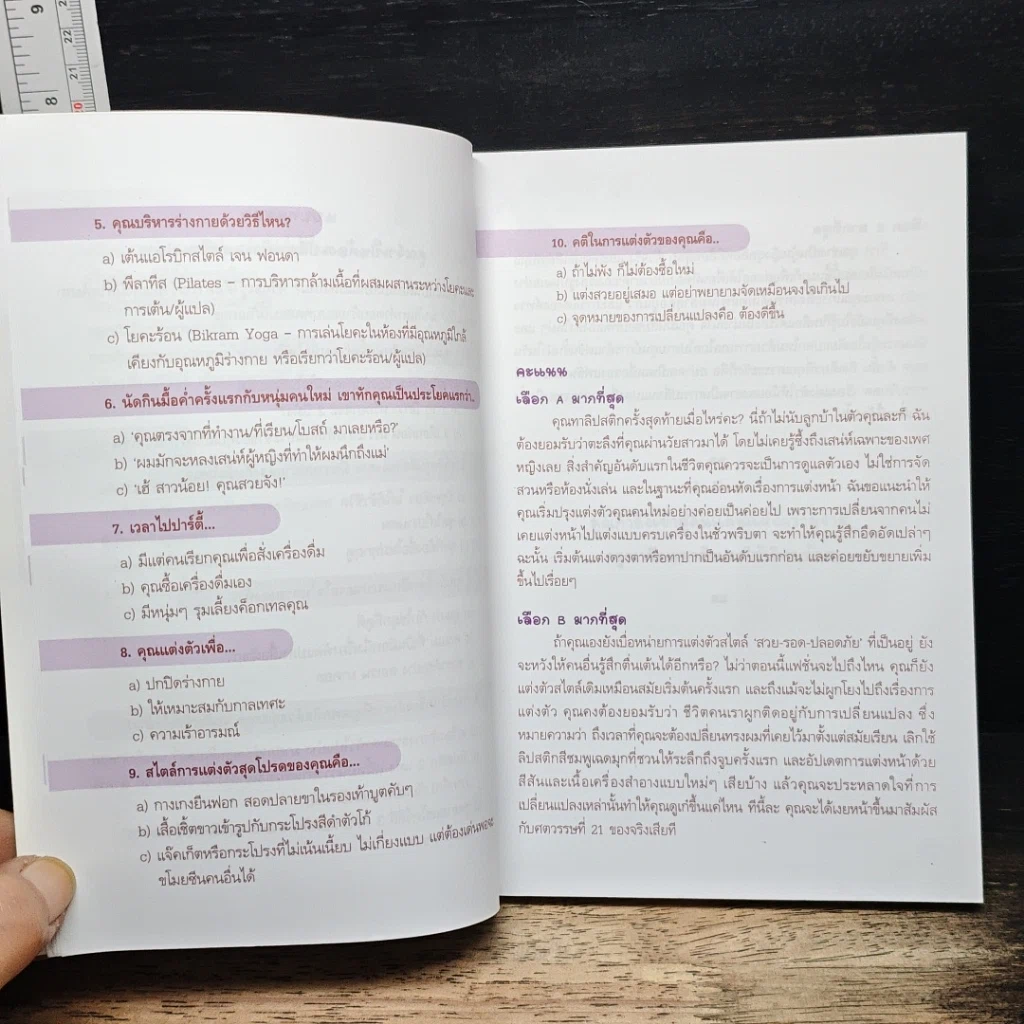 9
8
22
21
20
5. คุณบริหารร่างกายด้วยวิธีไหน?
a) เต้นแอโรบิกสไตล์ เจน ฟอนดา
b) พีลาทีส (Pilates – การบริหารกล้ามเนื้อที่ผสมผสานระหว่างโยคะและ
การเต้น/ผู้แปล)
c) โยคะร้อน (Bikram Yoga – การเล่นโยคะในห้องที่มีอุณหภูมิใกล้
เคียงกับอุณหภูมิร่างกาย หรือเรียกว่าโยคะร้อน/ผู้แปล)
6. นัดกินมื้อค่ำครั้งแรกกับหนุ่มคนใหม่ เขาทักคุณเป็นประโยคแรกว่า..
a) 'คุณตรงจากที่ทำงาน/ที่เรียน/โบสถ์ มาเลยหรือ?'
b) 'ผมมักจะหลงเสน่ห์ผู้หญิงที่ทำให้ผมนึกถึงแม่'
c) 'เฮ้ สาวน้อย! คุณสวยจัง!'
7. เวลาไปปาร์ตี้...
a) มีแต่คนเรียกคุณเพื่อสั่งเครื่องดื่ม
b) คุณซื้อเครื่องดื่มเอง
c) มีหนุ่มๆ รุมเลี้ยงค็อกเทลคุณ
8. คุณแต่งตัวเพื่อ...
a) ปกปิดร่างกาย
b) ให้เหมาะสมกับกาลเทศะ
c) ความเร้าอารมณ์
9. สไตล์การแต่งตัวสุดโปรดของคุณคือ...
a) กางเกงยีนฟอก สอดปลายขาในรองเท้าบูตคับๆ
b) เสื้อเชิ้ตขาวเข้ารูปกับกระโปรงสีดำตัวโก้
c) แจ๊คเก็ตหรือกระโปรงที่ไม่เน้นเนี้ยบ ไม่เกี่ยงแบบ แต่ต้องเด่นพอจะ
ขโมยซีนคนอื่นได้
10. คติในการแต่งตัวของคุณคือ..
a) ถ้าไม่พัง ก็ไม่ต้องซื้อใหม่
b) แต่งสวยอยู่เสมอ แต่อย่าพยายามจัดเหมือนจงใจเกินไป
c) จุดหมายของการเปลี่ยนแปลงคือ ต้องดีขึ้น
คะแนน
เลือก A มากที่สุด
คุณทาลิปสติกครั้งสุดท้ายเมื่อไหร่คะ? นี่ถ้าไม่นับลูกบ้าในตัวคุณละก็ ฉัน
ต้องยอมรับว่าตะลึงที่คุณผ่านวัยสาวมาได้ โดยไม่เคยรู้ซึ้งถึงเสน่ห์เฉพาะของเพศ
หญิงเลย สิ่งสำคัญอันดับแรกในชีวิตคุณควรจะเป็นการดูแลตัวเอง ไม่ใช่การจัด
สวนหรือห้องนั่งเล่น และในฐานะที่คุณอ่อนหัดเรื่องการแต่งหน้า ฉันขอแนะนำให้
คุณเริ่มปรุงแต่งตัวคุณคนใหม่อย่างค่อยเป็นค่อยไป เพราะการเปลี่ยนจากคนไม่
เคยแต่งหน้าไปแต่งแบบครบเครื่องในชั่วพริบตา จะทำให้คุณรู้สึกอึดอัดเปล่าๆ
ฉะนั้น เริ่มต้นแต่งดวงตาหรือทาปากเป็นอันดับแรกก่อน และค่อยขยับขยายเพิ่ม
ขึ้นไปเรื่อยๆ
เลือก B มากที่สุด
ถ้าคุณเองยังเบื่อหน่ายการแต่งตัวสไตล์ 'สวย-รอด-ปลอดภัย' ที่เป็นอยู่ ยัง
จะหวังให้คนอื่นรู้สึกตื่นเต้นได้อีกหรือ? ไม่ว่าตอนนี้แฟชั่นจะไปถึงไหน คุณก็ยัง
แต่งตัวสไตล์เดิมเหมือนสมัยเริ่มต้นครั้งแรก และถึงแม้จะไม่ผูกโยงไปถึงเรื่องการ
แต่งตัว คุณคงต้องยอมรับว่า ชีวิตคนเราผูกติดอยู่กับการเปลี่ยนแปลง ซึ่ง
หมายความว่า ถึงเวลาที่คุณจะต้องเปลี่ยนทรงผมที่เคยไว้มาตั้งแต่สมัยเรียน เลิกใช้
ลิปสติกสีชมพูเฉดมุกที่ชวนให้ระลึกถึงจูบครั้งแรก และอัปเดตการแต่งหน้าด้วย
สีสันและเนื้อเครื่องสำอางแบบใหม่ๆ เสียบ้าง แล้วคุณจะประหลาดใจที่การ
เปลี่ยนแปลงเหล่านั้นทำให้คุณดูเก๋ขึ้นแค่ไหน ทีนี้ละ คุณจะได้เงยหน้าขึ้นมาสัมผัส
กับศตวรรษที่ 21 ของจริงเสียที